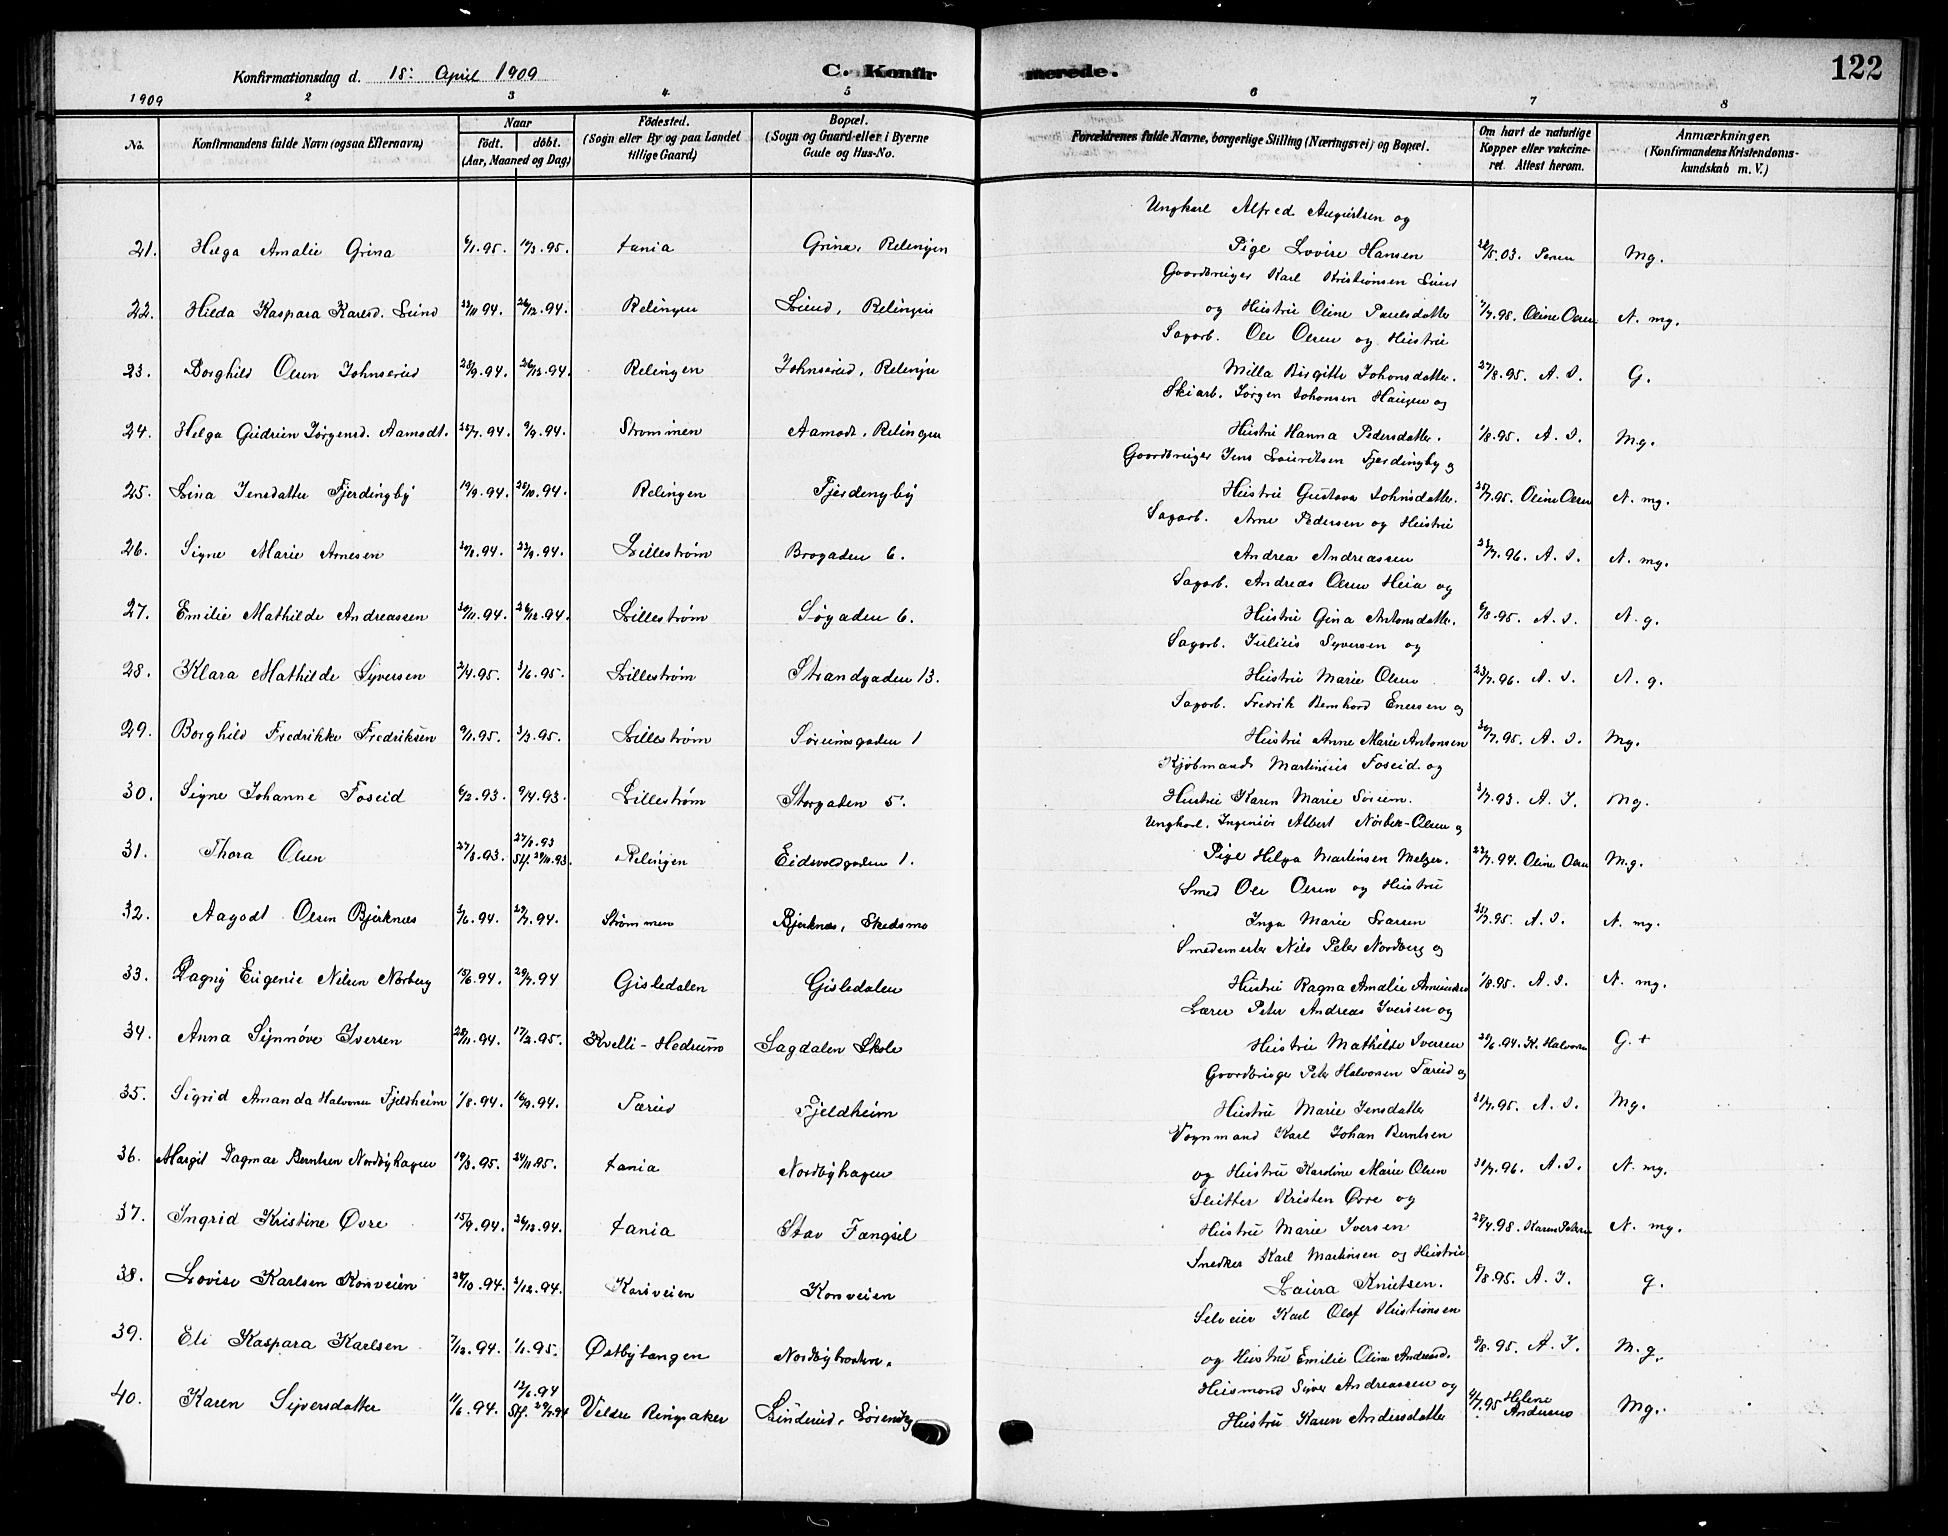 Konfirmationsdag d. 18: April 1909
C. Konfirmerede.
122
1909 2 3 4 5 6 7 8
No.
Konfirmandens fulde Navn (ogsaa Efternavn)
Naar
født. døbt.
(Aar, Maaned og Dag)
Fødested.
(Sogn eller By og paa Landet
tillige Gaard)
Bopæl.
(Sogn og Gaard eller i Byerne
Gade og Hus-No.
Forældrenes fulde Navne, borgerlige Stilling (Næringsvei) og Bopæl.
Om havt de naturlige
Kopper eller vakcine-
ret. Attest herom.
Anmærkninger.
(Konfirmandens Kristendoms-
kundskab m. V.)
Ungkarl Alfred Augustsen og
21. Helga Amalie Grina 6/1.95. 95. Grina, Relingen Pige Lovise Hansen 5.03. Mg.
Gaardbruger Karl Kristiansen Lund
22. Hilda Kaspara Karlsd. Lund 11.94. 26/12.94. Relingen Lund, Relingen og Hustru Oline Paulsdatter Oline Olsen N. mg.
Sagarb. Ole Olsen og Hustru
23. Borghild Olsen Johnsrud 28/9.94. 26/12.94. Relingen Johnsrud, Relingen Milla Birgitte Johansdatter. 27/8.95. A. S. G.
Skiarb. Jørgen Johansen Haugen og
24. Helga Gudrun Jørgensd. Aamodt. 7.94. 9/9.94. Strømmen Aamodt, Relingen Hustru Hanna Pedersdatter. 1/8.95. A. S. Mg.
Gaardbruger Jens Lauritsen Fjerdingby og
25. Lina Jensdatter Fjerdingby 19/9.94. 10.94. Relingen Fjerdingby Hustru Gustava Johnsdatter. 7.95. Oline Olsen N. mg.
Sagarb. Arne Pedersen og Hustru
26. Signe Marie Arnesen 94. 23/9.94. Lillestrøm Brogaden 6. Andrea Andreassen 7.96. A. S. N. mg.
Sagarb. Andreas Olsen Heia og
27. Emilie Mathilde Andreassen 11.94. 26/12.94. Lillestrøm Søgaden 6. Hustru Gina Antonsdatter. 6/8.95. A. S. N. g.
Sagarb. Julius Syversen og
28. Klara Mathilde Syversen 2/4.95. 3/6.95. Lillestrøm Strandgaden 13. Hustru Marie Olsen 23/7.96. A. S. N. g.
Sagarb. Fredrik Bernhard Enersen og
29. Borghild Fredrikke Fredriksen 9/1.95. 3/3.95. Lillestrøm Sørumsgaden 1 Hustru Anne Marie Antonsen 30/7.95. A. S. Mg.
Kjøbmand Martinius Foseid og
30. Signe Johanne Foseid 6/2.93. 9/4.93. Lillestrøm Storgaden 5. Hustru Karen Marie Sørum. 93. A. S. Mg.
Ungkarl, Ingeniør Albert Olsen og
31. Thora Olsen 93. 93 Stf. 93. Relingen Eidsvoldgaden 1. Pige Helga Martinsen Melzer. 7.94. Oline Olsen M.g.
Smed Ole Olsen og Hustru
32. Aagodt Olsen Bjerknæs 6.94. 29/7.94. Strømmen Bjerknæs, Skedsmo Inga Marie Larsen 7.95. A. S. N. mg.
Smedemester Nils Peter Nordberg og
33. Dagny Eugenie Nilsen Norberg 15/6.94. 29/7.94 Gisledalen Gisledalen Hustru Ragna Amalie 1/8.95. A. S. N. mg.
Lærer Peter Andreas Iversen og
34. Anna Synnøve Iversen 28/11.94. 17/2.95. Kvelli-Hedrum Sagdalen Skole Hustru Mathilde Iversen 6.94. K. Halvorsen G. +
Gaardbruger Peter Halvorsen Færud og
35. Sigrid Amanda Halvorsen Fjeldheim 1/8.94. 16/9.94. Færud Fjeldheim Hustru Marie Jensdatter 31/7.95. A. S. Mg.
Vognmand Karl Johan Berntsen
36. Margit Dagmar Berntsen Nordbyhagen 19/3.95. 24/11.95. Nordbyhagen og Hustru Karoline Marie Olsen 7.96. A. S. N. mg.
Kristen Øvre og
37. Ingrid Kristine Øvre 15/9.94. 26/12.94. Stav Fængsel Hustru Marie Iversen 28/4.98. Karen N. mg.
Snedker Karl Martinsen og Hustru
38. Lovise Karlsen Korsveien 28/10.94. 12.94. Korsveien Korsveien Laura Knutsen. 8.95. A. S. g.
Selveier Karl Olof Kristiansen
39. Eli Kaspara Karlsen 7/12.94. 1/1.95. Østbytangen og Hustru Emilie Oline Andreasd. 8.95. A. S. M.g.
Husmand Syver Andreassen og
40. Karen Syversdatter 11/6.94. 12/6.94 Stf. 94 Veldre Ringsaker Linderud, Lørenskog Hustru Karen Andersdatter 4/7.95 Helene Andersen Mg.